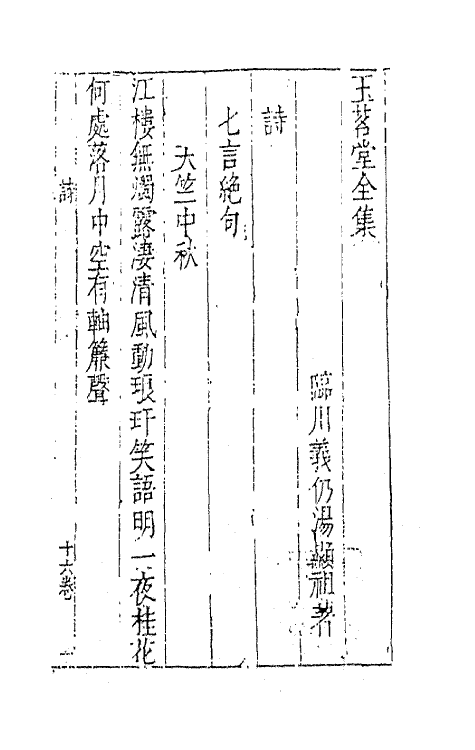 玉茗堂全集
臨川義仍湯顯祖著
詩
七言絶句
大竺中秋
江樓無燭露凄清風動琅玕笑語明一夜桂花
何處落月中空有軸簾聲
詩
十六卷
一